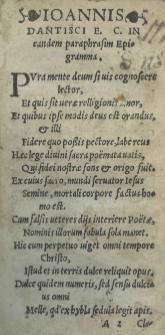 IOANNIS
DANTISCI E. C. IN
eandem paraphrasim Epi
gramma.
PVra mente deum si uis cognoscere
lector,
Et quis sit uerae relligionis nor,
Et quibus ipse modis deus est orandus,
& illi
Fidere quo possis pectore, labe reus
Hec lege diuini sacra poëmata uatis,
Qui fidei nostrae fons & origo fuit.
Ex cuius sacro, mundi seruator Iesus
Semine, mortali corpore factus ho=
mo est.
Cum falsis ueteres dijs interiere Poëtae,
Nominis illorum fabula sola manet.
Hic cum perpetuo uiget omni tempore
Christo,
Istud et in terris dulce reliquit opus.
Dulce quidem numeris, sed sensu dulci=
us omni
Melle, qd'ex hybla sedula legit apis.
A 2 Cle=